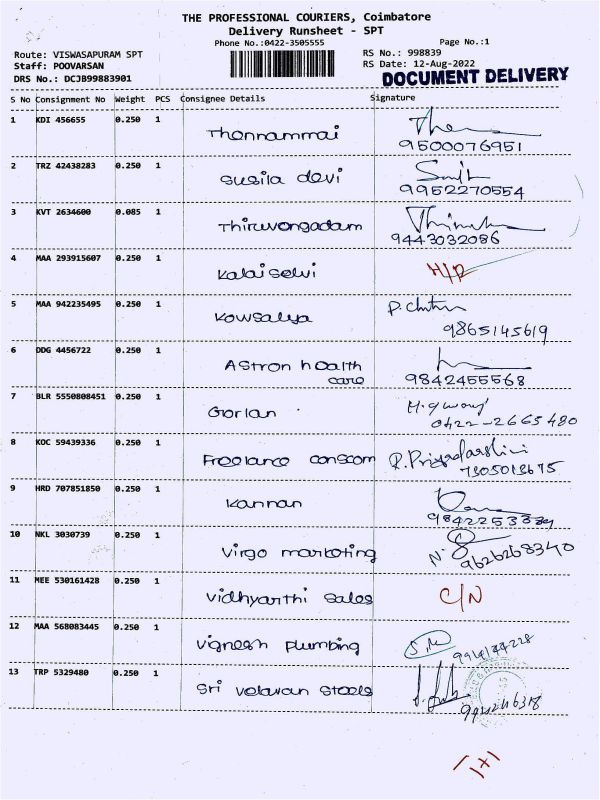 THE PROFESSIONAL COURIERS, Coimbatore
Delivery Runsheet - SPT
Phone No.:0422-3505555
Page No.:1
Route: VISWASAPURAM SPT
RS No.: 998839
Staff: POOVARSAN
RS Date: 12-Aug-2022
DRS No.: DCJB99883901
DOCUMENT DELIVERY
S No Consignment No Weight PCS Consignee Details Signature
1 KDI 456655 0.250 1 Thennammai
9500076951
2 TRZ 42438283 0.250 1 susila devi
9952270554
3 KVT 2634600 0.085 1 Thiruvengadam
9443032086
4 MAA 293915607 0.250 1 Kalai selvi
5 MAA 942235495 0.250 1 Kowsalya
9865145619
6 DDG 4456722 0.250 1 Astron health
care 9842455568
7 BLR 5550808451 0.250 1
0422-2665480
8 KOC 59439336 0.250 1 Freelance R. Priyadarshini
7305013675
9 HRD 707851850 0.250 1 Kannan
10 NKL 3030739 0.250 1 virgo marketing
9626268340
11 MEE 530161428 0.250 1 vidhyarthi sales C/N
12 MAA 568083445 0.250 1 vignesh plumbing
13 TRP 5329480 0.250 1 sri velavan steels
1+1